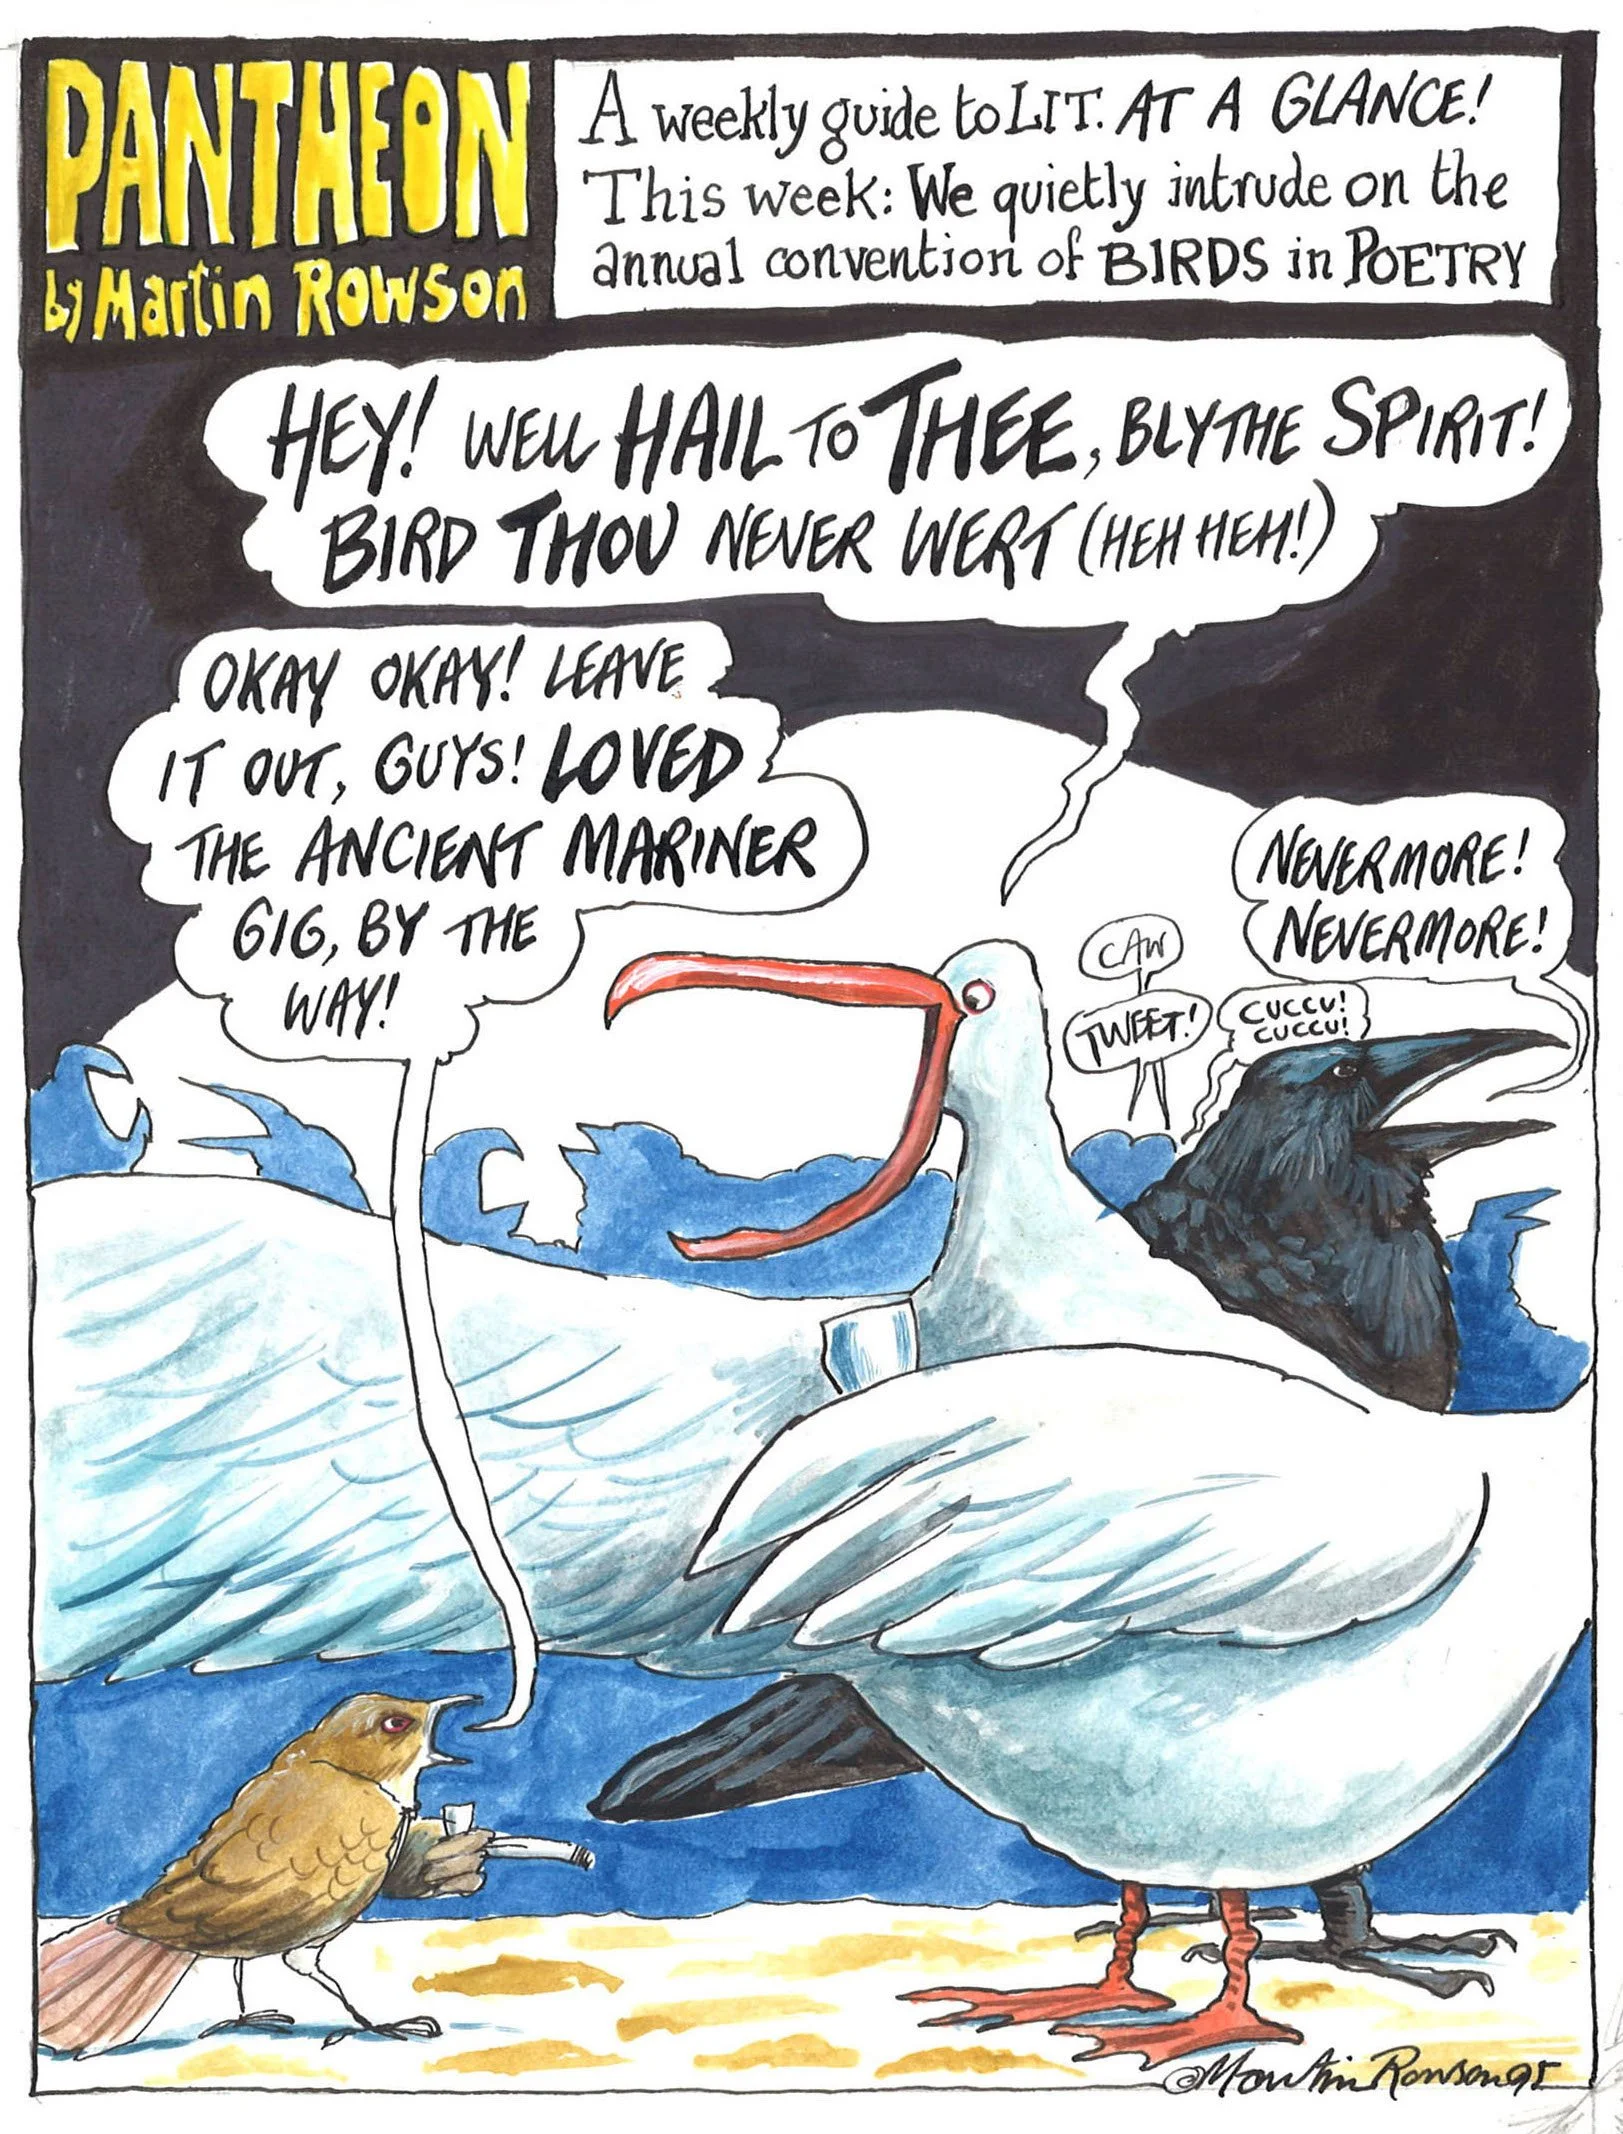 PANTHEON
by Martin Rowson
A weekly guide to LIT. AT A GLANCE!
This week: We quietly intrude on the
annual convention of BIRDS in POETRY
HEY! WELL HAIL TO THEE, BLYTHE SPIRIT!
BIRD THOU NEVER WERT (HEH HEH!)
OKAY OKAY! LEAVE
IT OUT, GUYS! LOVED
THE ANCIENT MARINER
GIG, BY THE
WAY!
NEVERMORE!
NEVERMORE!
CAW
TWEET!
CUCCU!
CUCCU!
© Martin Rowson 95